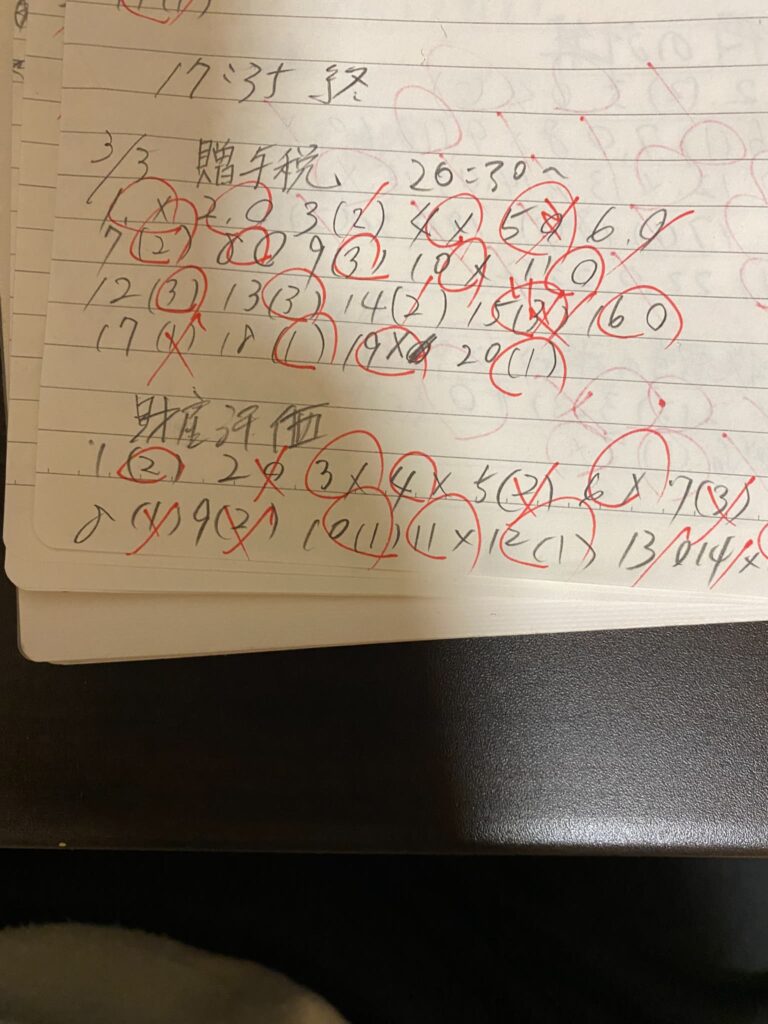 17:35 終
3/3 贈与税 20:30~
1. × 2. 0 3 (2) 4 × 5 6. 0
7 (2) 8 0 9 (3) 10 × 11 0
12 (3) 13 (3) 14 (2) 15 (3) 16 0
17 18 (1) 19 × 20 (1)
財産評価
1 (2) 2 0 3 × 4. × 5 (2) 6 × 7 (3)
8 9 (2) 10 (1) 11 × 12 (1) 13 0 14 ×